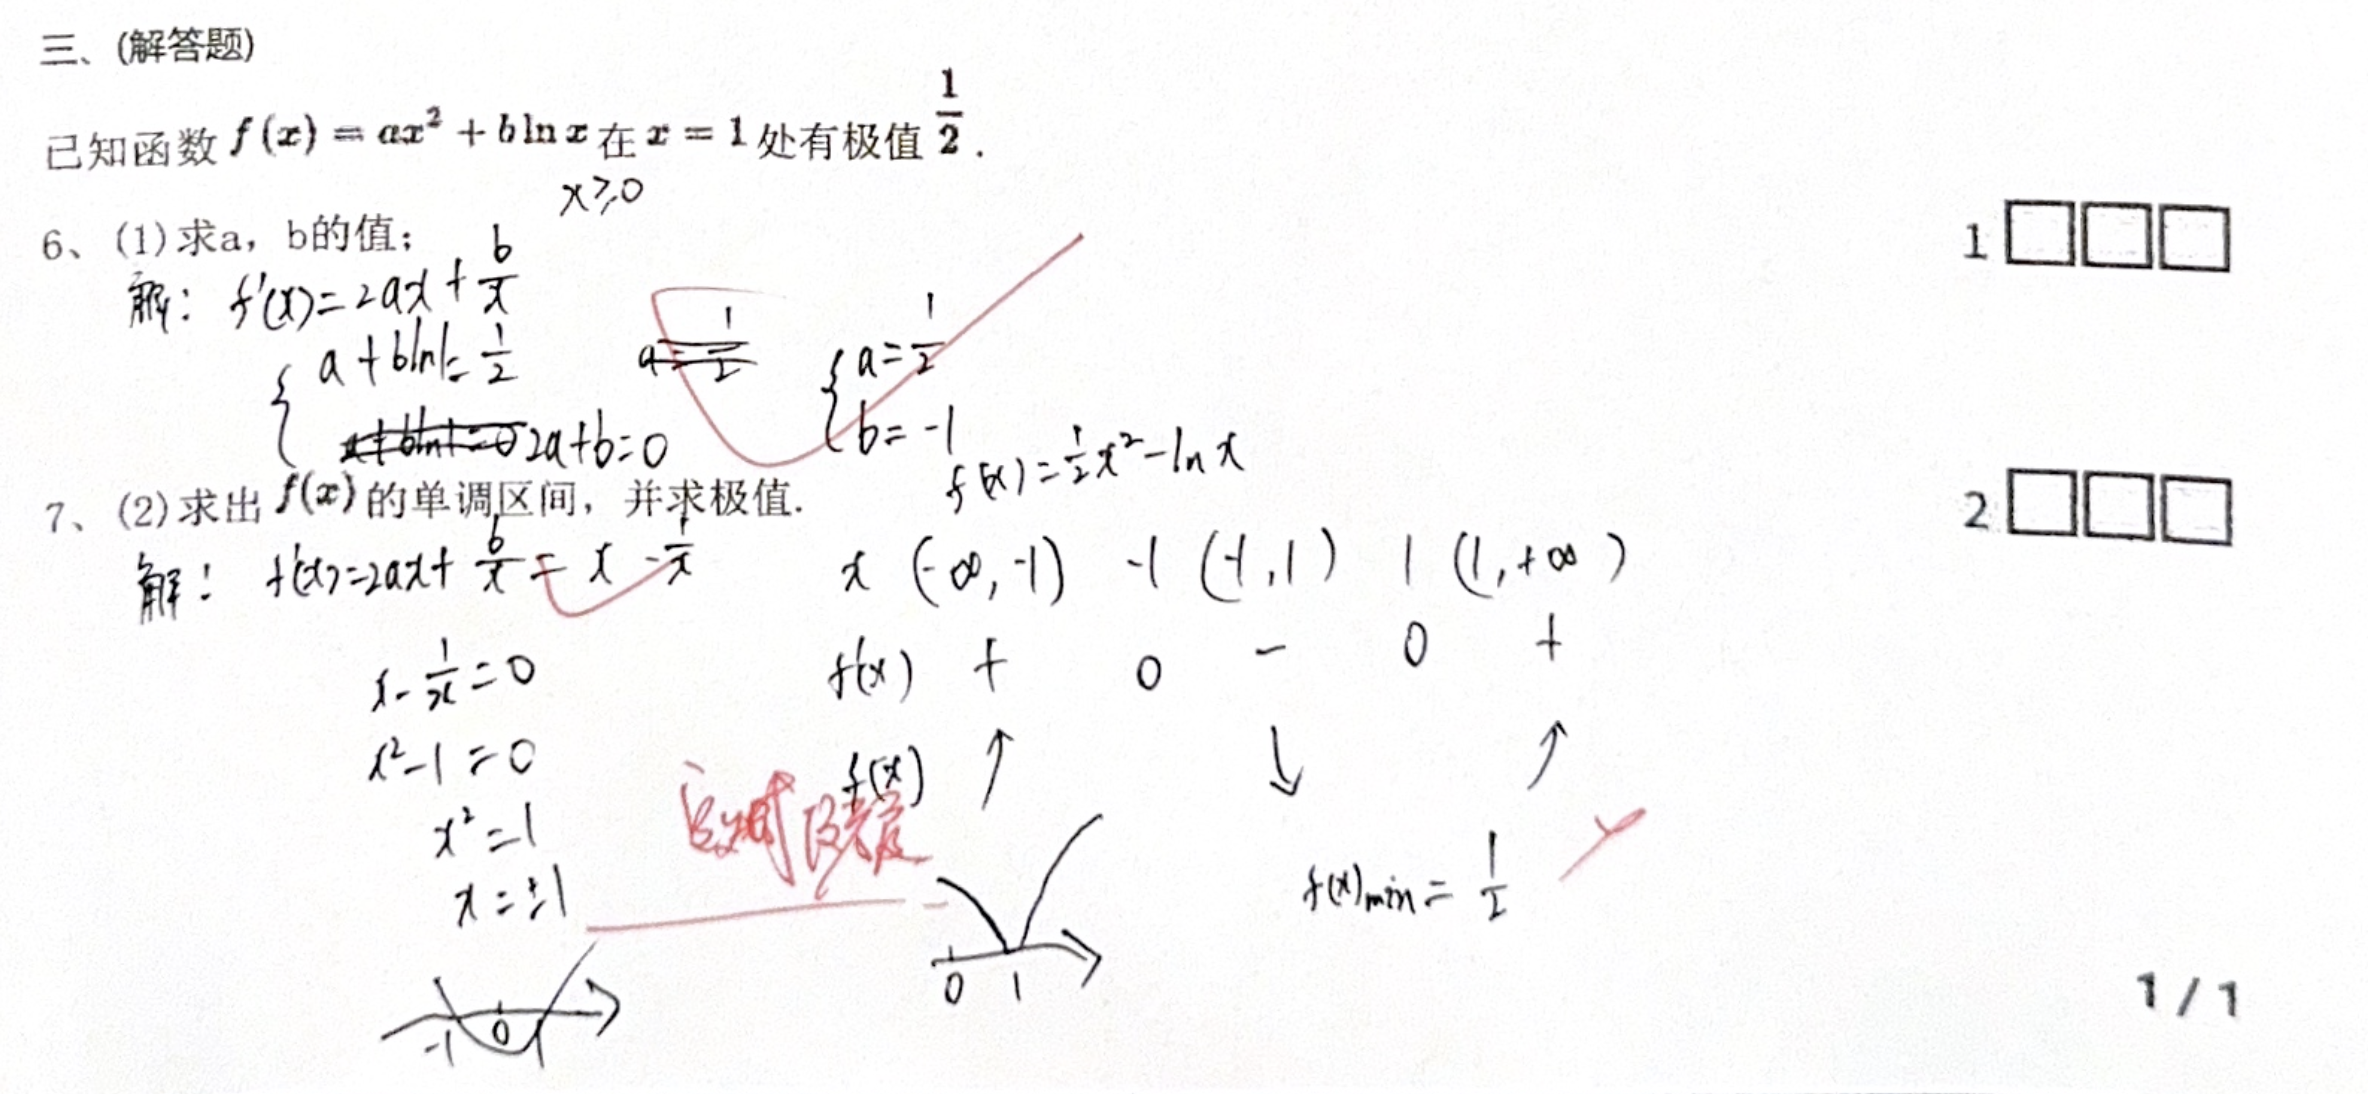 三、(解答题)
已知函数 f(x) = ax² + b ln x 在 x = 1 处有极值 1/2 .
x≥0
6、(1)求a，b的值；
解: f'(x)=2ax+b/x
{ a+bln1=1/2
2a+b=0
a=1/2
{ a=1/2
b=-1
f(x)=1/2x²-lnx
7、(2)求出 f(x) 的单调区间，并求极值.
解: f'(x)=2ax+b/x=x-1/x
x-1/x=0
x²-1=0
x²=1
x=±1
-1 0 1
x (-∞,-1) -1 (-1,1) 1 (1,+∞)
f'(x) + 0 - 0 +
f(x) ↑ ↓ ↑
0 1
f(x)min=1/2
1 □□□
2 □□□
1 / 1